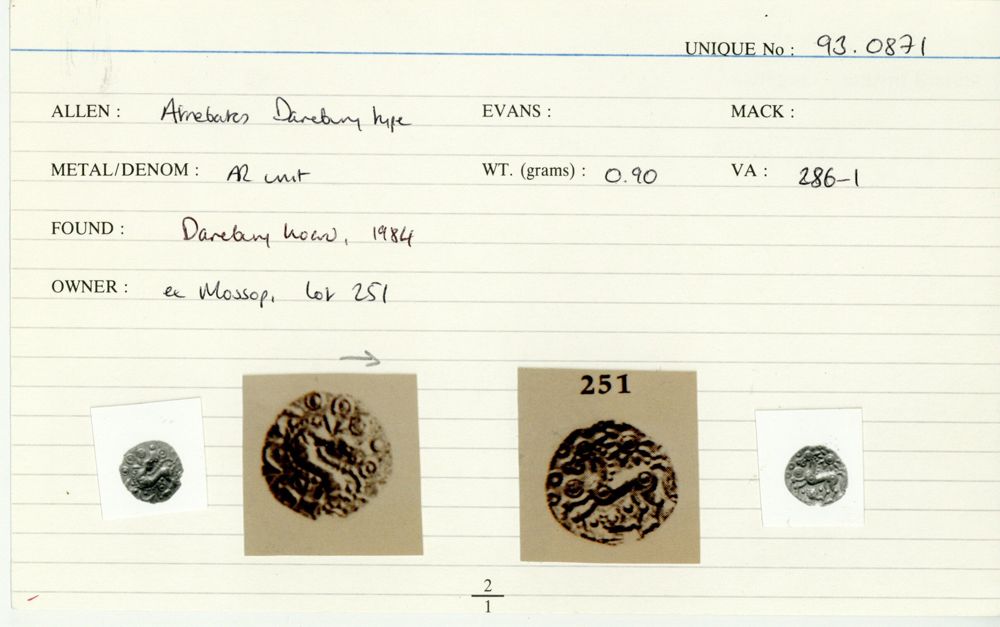 UNIQUE No : 93.0871
ALLEN : Atrebates Danebury type EVANS : MACK :
METAL/DENOM : AR unit WT. (grams) : 0.90 VA : 286-1
FOUND : Danebury hoard, 1984
OWNER : ex Mossop, lot 251
251
2
1